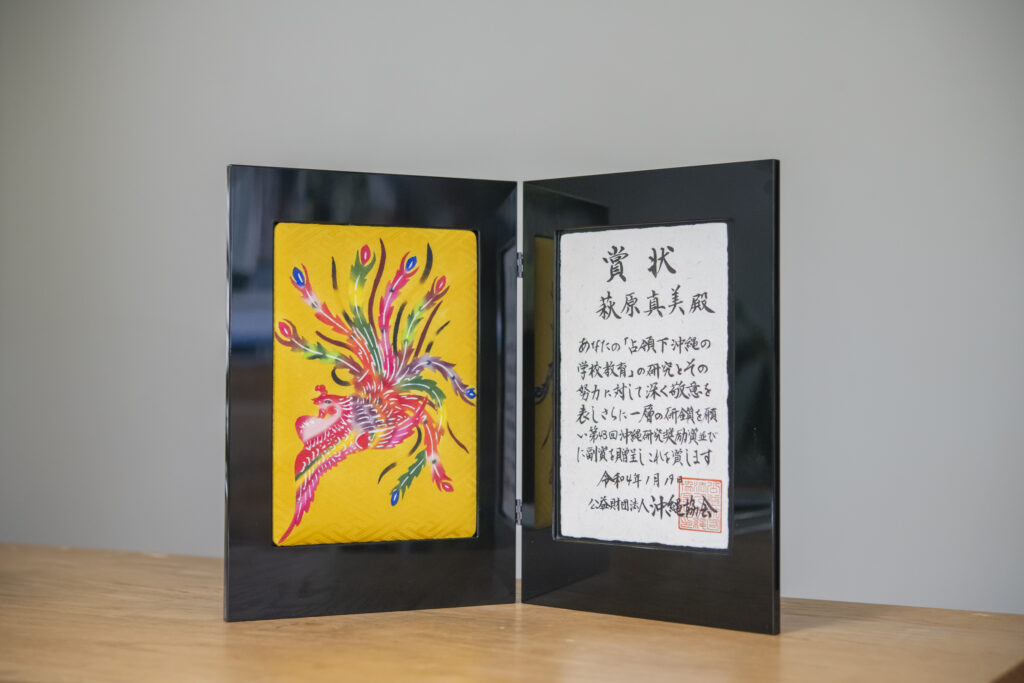 賞状
萩原真美殿
あなたの「占領下沖縄の
学校教育」の研究とその
努力に対して深く敬意を
表しさらに一層の研鑽を願
い第43回沖縄研究奨励賞並び
に副賞を贈呈しこれを賞します
令和4年1月19日
公益財団法人 沖縄協会